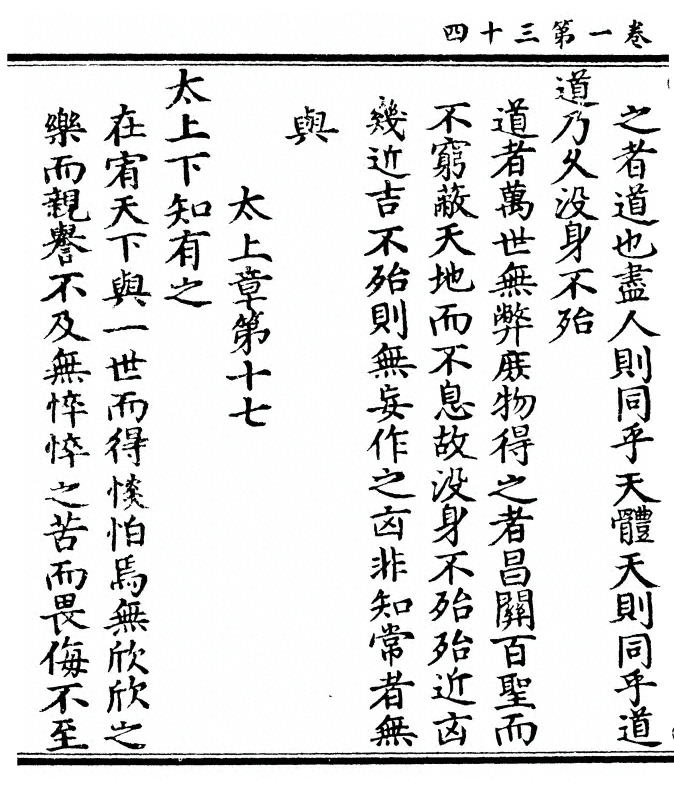 卷一第三十四
之者道也盡人則同乎天體天則同乎道
道乃久没身不殆
道者萬世無弊庶物得之者昌關百聖而
不窮蔽天地而不息故没身不殆殆近凶
幾近吉不殆則無妄作之凶非知常者無
與
太上章第十七
太上下知有之
在宥天下與一世而得惔怕焉無欣欣之
樂而親譽不及無悴悴之苦而畏侮不至